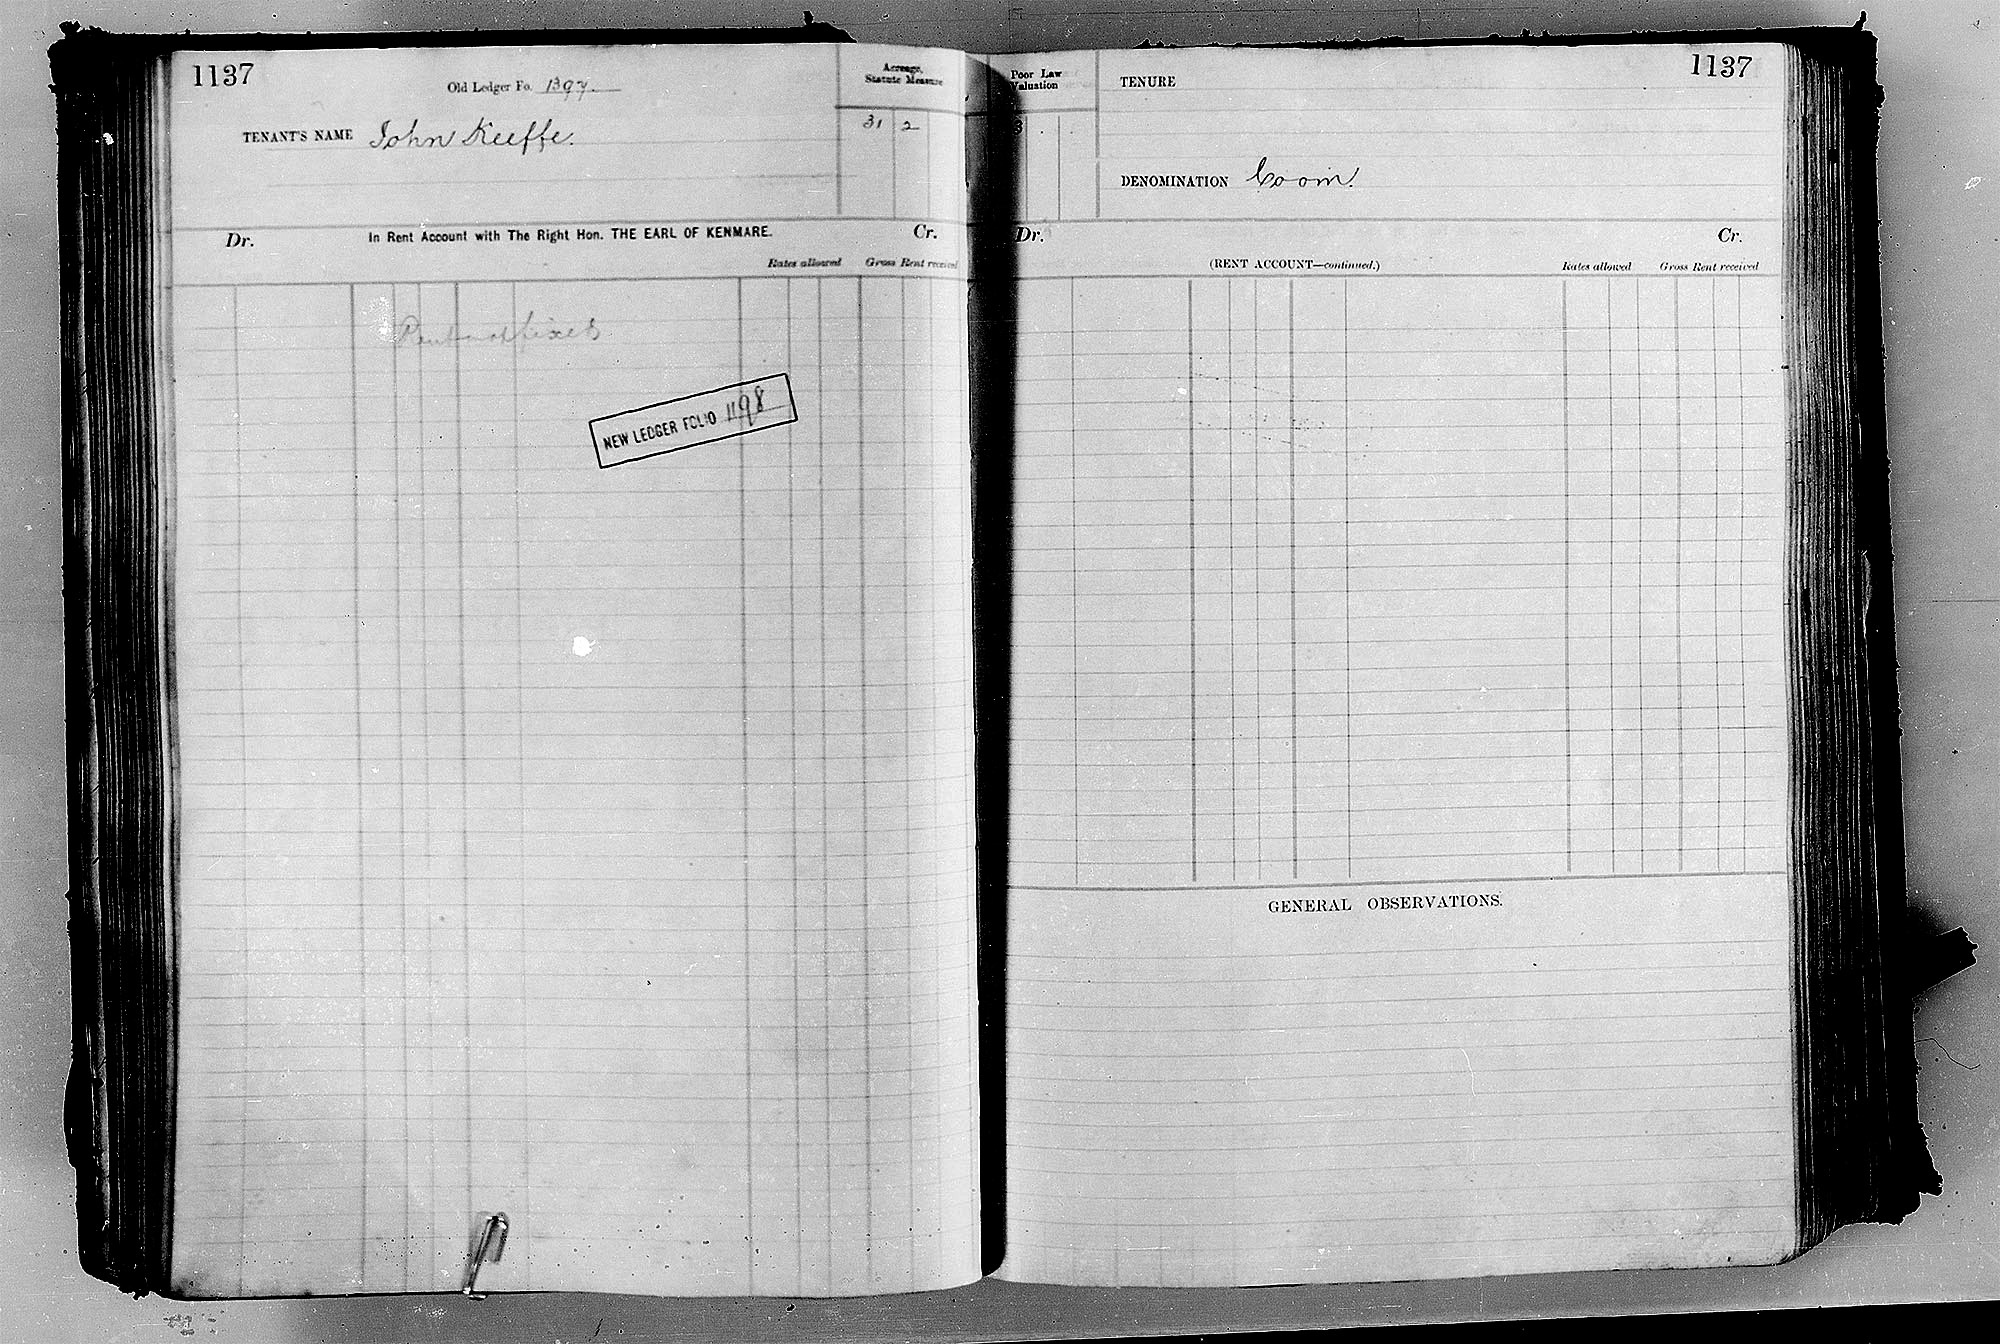 1137
Old Ledger Fo. 1397.
TENANT'S NAME John Keeffe.
Acreage,
Statute Measure
31 2
Dr. In Rent Account with The Right Hon. THE EARL OF KENMARE. Cr.
Rates allowed Gross Rent received
Rent not fixed
NEW LEDGER FOLIO 1198
1137
Poor Law
Valuation
3
TENURE
DENOMINATION Coom.
Dr. Cr.
(RENT ACCOUNT—continued.) Rates allowed Gross Rent received
GENERAL OBSERVATIONS.